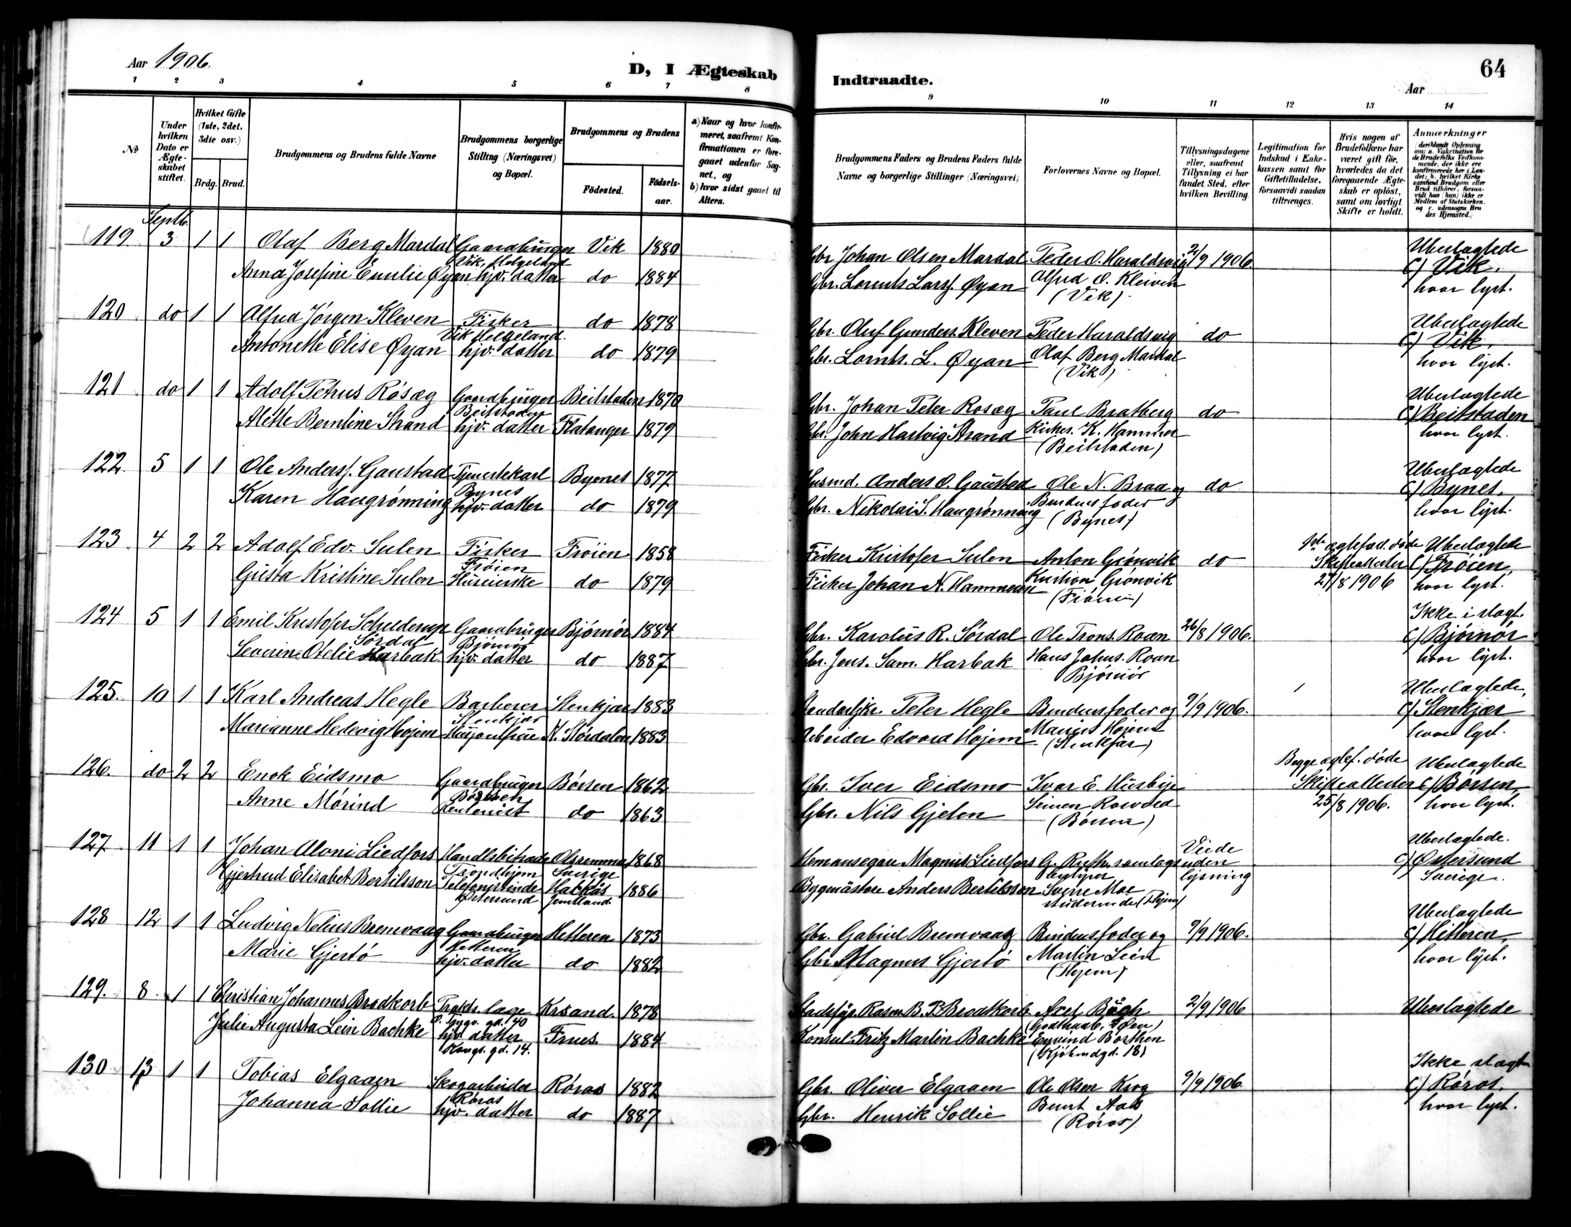 Aar 1906.
D, I Ægteskab Indtraadte.
Aar
64
1 2 3 4 5 6 7 8 9 10 11 12 13 14
No
Under hvilken Dato er Ægteskabet stiftet.
Hvilket Gifte (1ste, 2det, 3die osv.)
Brdg. Brud.
Brudgommens og Brudens fulde Navne
Brudgommens borgerlige Stilling (Næringsvei) og Bopæl.
Brudgommens og Brudens
Fødested. Fødselsaar.
Brudgommens Faders og Brudens Faders fulde Navne og borgerlige Stillinger (Næringsvei)
Forlovernes Navne og Bopæl.
Tillysningsdagene eller, saafremt Tillysning ei har fundet Sted, efter hvilken Bevilling
Legitimation for Indskud i Enkekassen samt for Giftetilladelse, forsaavidt saadan tiltrænges.
Hvis nogen af Brudefolkene har været gift før, hvorledes da det foregaaende Ægteskab er opløst, samt om lovligt Skifte er holdt.
Anmærkninger
Septb.
119. 3 1 1 Olaf Berg Mardal Gaardbruger Vik 1880 Gbr. Johan Olsen Mardal Peder O. Haraldsvig 2/9 1906. Ubeslægtede
Vik, Helgeland c) Vik,
Anna Josefine Emilie Øyan hjv. datter do 1884 Gbr. Lorents Larss. Øyan Alfred O. Kleiven hvor lyst.
(Vik)
120 do 1 1 Alfred Jørgen Kleven Fisker do 1878 Gbr. Oluf Gunders. Kleven Peder Haraldsvig do Ubeslægtede
Vik Helgeland. c) Vik,
Antonette Elise Øyan hjv. datter do 1879 Gbr. Lornts. L. Øyan Olaf Berg Mardal hvor lyst.
(Vik)
121 do 1 1 Adolf Petrus Rosæg Gaardbruger Beitstaden 1870 Gbr. Johan Peter Rosæg Paul Bratberg do Ubeslægtede
Beitstaden c) Beitstaden
Alette Berntine Strand hjv. datter Flatanger 1879 Gbr. John Hartvig Strand Kirkes. K. Hammer hvor lyst.
(Beitstaden)
122. 5 1 1 Ole Anders. Gaustad Tjenestekarl Bynes 1877 Husmd. Anders O. Gaustad Ole N. Braa og do Ubeslægtede
Bynes c) Bynes,
Karen Haugrønning hjv. datter do 1879 Gbr. Nikolai S. Haugrønning Brudens fader hvor lyst.
(Bynes)
123. 4 2 2 Adolf Edv. Sulen Fisker Frøien 1858 Fisker Kristofer Sulen Anton Grønvik do Ubeslægtede
Frøien Skifteattester c) Frøien,
Gusta Kristine Sulen do 1879 Fisker Johan N. Hammeren Kristian Grønvik 27/8 1906 hvor lyst.
124 5 1 1 Emil Kristofer Schelderup Gaardbruger Bjørnør 1884 Gbr. Karolus R. Sørdal Ole Trons. Roan 26/8 1906. Ikke i slægt.
Sørdal Bjørnør c) Bjørnør
Severine Otelie Harbak hjv. datter do 1887 Gbr. Jens. Sam. Harbak Hans Johns. Roan hvor lyst.
Bjørnør
125. 10 1 1 Karl Andreas Hegle Barberer Stenkjær 1883 Peter Hegle Brudens fader og 9/9 1906. Ubeslægtede,
Stenkjær c) Stenkjær
Marianne Hedevig Hojem N. Størdalen 1883 Arbeider Edvard Hojem Marius Hojem hvor lyst.
(Stenkjær)
126. do 2 2 Enok Eidsmo Gaardbruger Børsen 1862 Gbr. Iver Eidsmo Ivar E. Husbye Begge ægtef. døde Ubeslægtede
Børsen Skifteattester c) Børsen,
Anne Mørind do 1863 Gbr. Nils Gjelen Simen 25/8 1906. hvor lyst.
(Børsen)
127. 11 1 1 Johan Aloni Liedfors Handlsbitræde 1868 Hemansegare Magnus Liedfors G. Rüth, Viede uden lysning Ubeslægtede.
Trondhjem Sverige c) Østersund
Gjertrud Elisabet Bertilsson Østersund Hackås Jemtland 1886 Bygmästare Anders Bertilsson Sverre Moe Sverige.
128 12 1 1 Ludvig Nelius Bremvaag Gaardbruger Hitteren 1873 Gbr. Gabriel Bremvaag Brudens fader og 9/9 1906. Ubeslægtede
Hitteren c) Hitteren,
Marie Gjertø hjv. datter do 1882 Gbr. Magnus Gjertø Martin Lien hvor lyst.
129. 8. 1 1 Christian Johannes Bradkorb Krsand 1878 Rasm. B. B. Brodtkorb Axel Bügh 2/9 1906 Ubeslægtede
gd. 40
Julie Augusta Lein Bachke hjv. datter Trues. 1884 Konsul Fritz Martin Bachke Eyvind Borthen
Kongs. gd. 14. (Kjøbmdgd. 18)
130 13 1 1 Tobias Elgaaen Skogarbeider Røros 1882 Gbr. Oliver Elgaaen Ole Olsen Krog 9/9 1906 Ikke slægt
Røros c) Røros.
Johanna Sollie hjv. datter do 1887 Gbr. Henrik Sollie Bernt Aas hvor lyst.
(Røros)